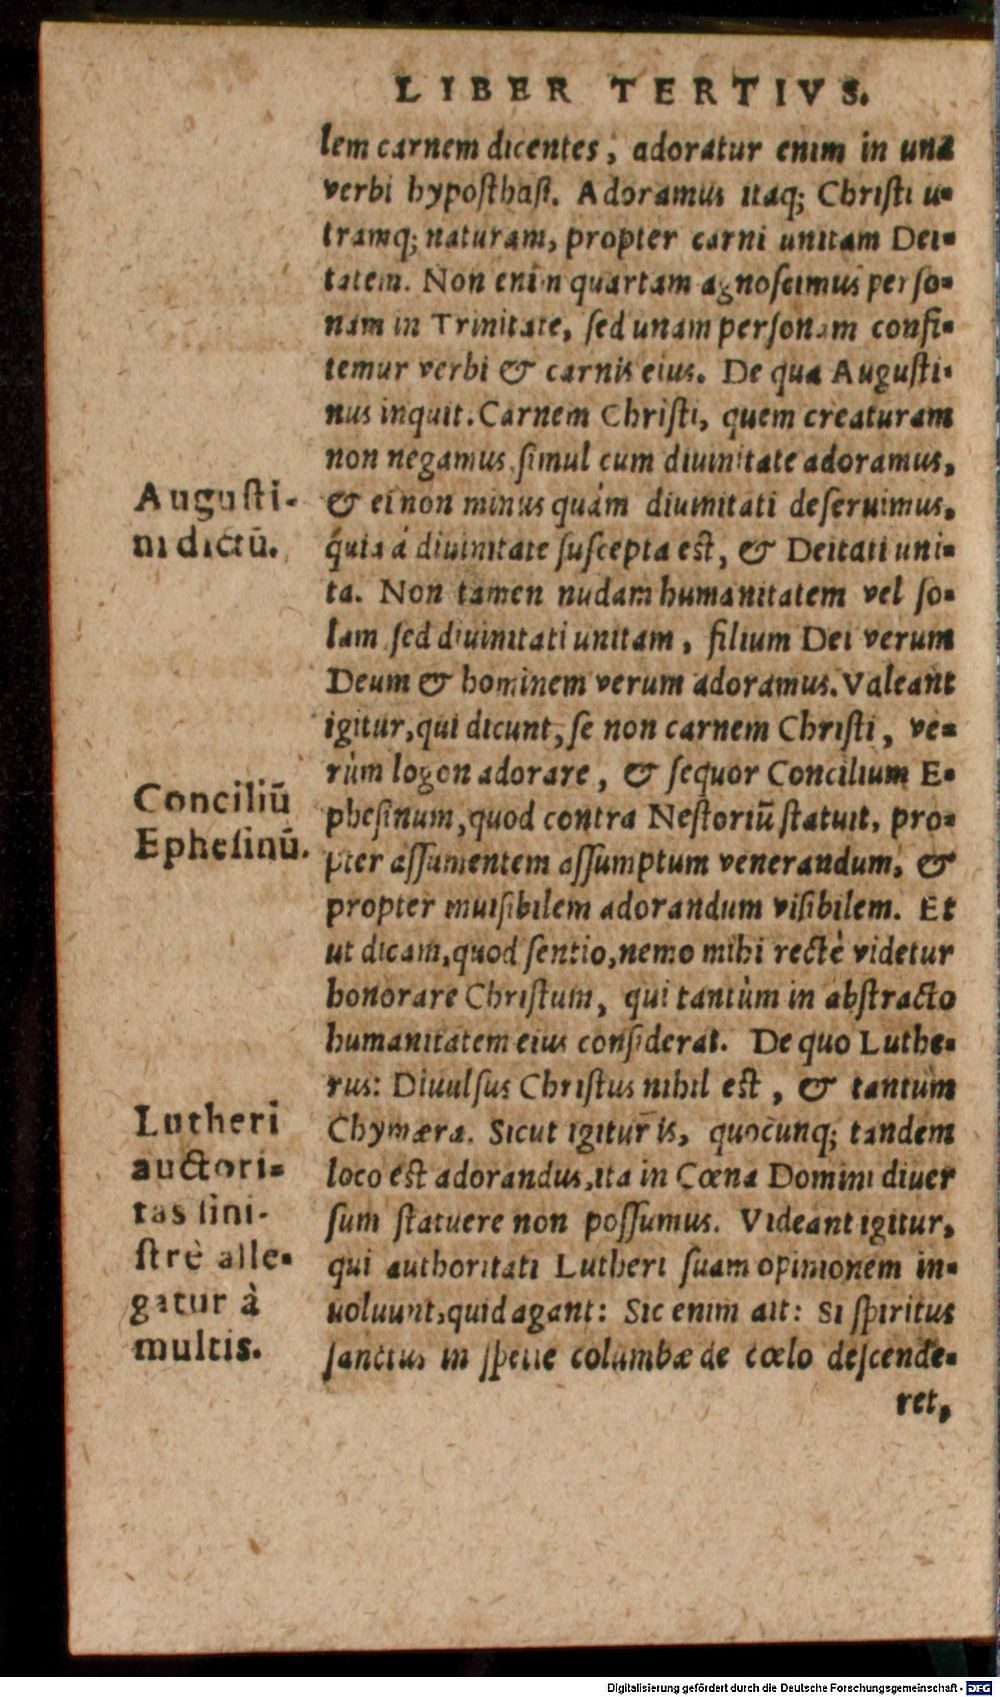 LIBER TERTIVS.
lem carnem dicentes, adoratur enim in una
verbi hyposthasi. Adoramus itaq; Christi u-
tramq; naturam, propter carni unitam Dei-
tatem. Non enim quartam agnoscimus perso-
nam in Trinitate, sed unam personam confi-
temur verbi & carnis eius. De qua Augusti-
nus inquit. Carnem Christi, quem creaturam
non negamus simul cum diuinitate adoramus,
Augusti-
ni dictū.
& ei non minus quàm diuinitati deseruimus,
quia á diuinitate suscepta est, & Deitati uni-
ta. Non tamen nudam humanitatem vel so-
lam sed diuinitati unitam, filium Dei verum
Deum & hominem verum adoramus. Valeant
igitur, qui dicunt, se non carnem Christi, ve-
rùm logon adorare, & sequor Concilium E-
Conciliū
Ephesinū.
phesinum, quod contra Nestoriū statuit, pro-
pter assumentem assumptum venerandum, &
propter inuisibilem adorandum visibilem. Et
ut dicam, quod sentio, nemo mihi rectè videtur
honorare Christum, qui tantùm in abstracto
humanitatem eius considerat. De quo Luthe-
rus: Diuulsus Christus nihil est, & tantum
Lutheri
auctori-
tas sini-
strè alle-
gatur à
multis.
Chymæra. Sicut igitur is, quocunq; tandem
loco est adorandus, ita in Cœna Domini diuer
sum statuere non possumus. Videant igitur,
qui authoritati Lutheri suam opinionem in-
uoluunt, quid agant: Sic enim ait: Si spiritus
sanctus in specie columbæ de cœlo descende-
ret,
Digitalisierung gefördert durch die Deutsche Forschungsgemeinschaft - DFG